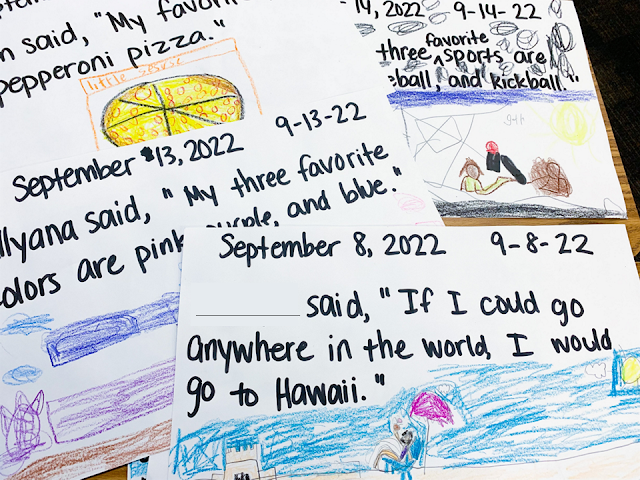 "My favorit
said, "
pepperoni pizza."
little
14, 2022 9-14-22
favorite
three sports are
and kickball."
September 13, 2022 9-13-22
llyana said, "My three favorite
colors are pink, purple, and blue."
September 8, 2022 9-8-22
said, "If I could go
anywhere in the world, I would
go to Hawaii."